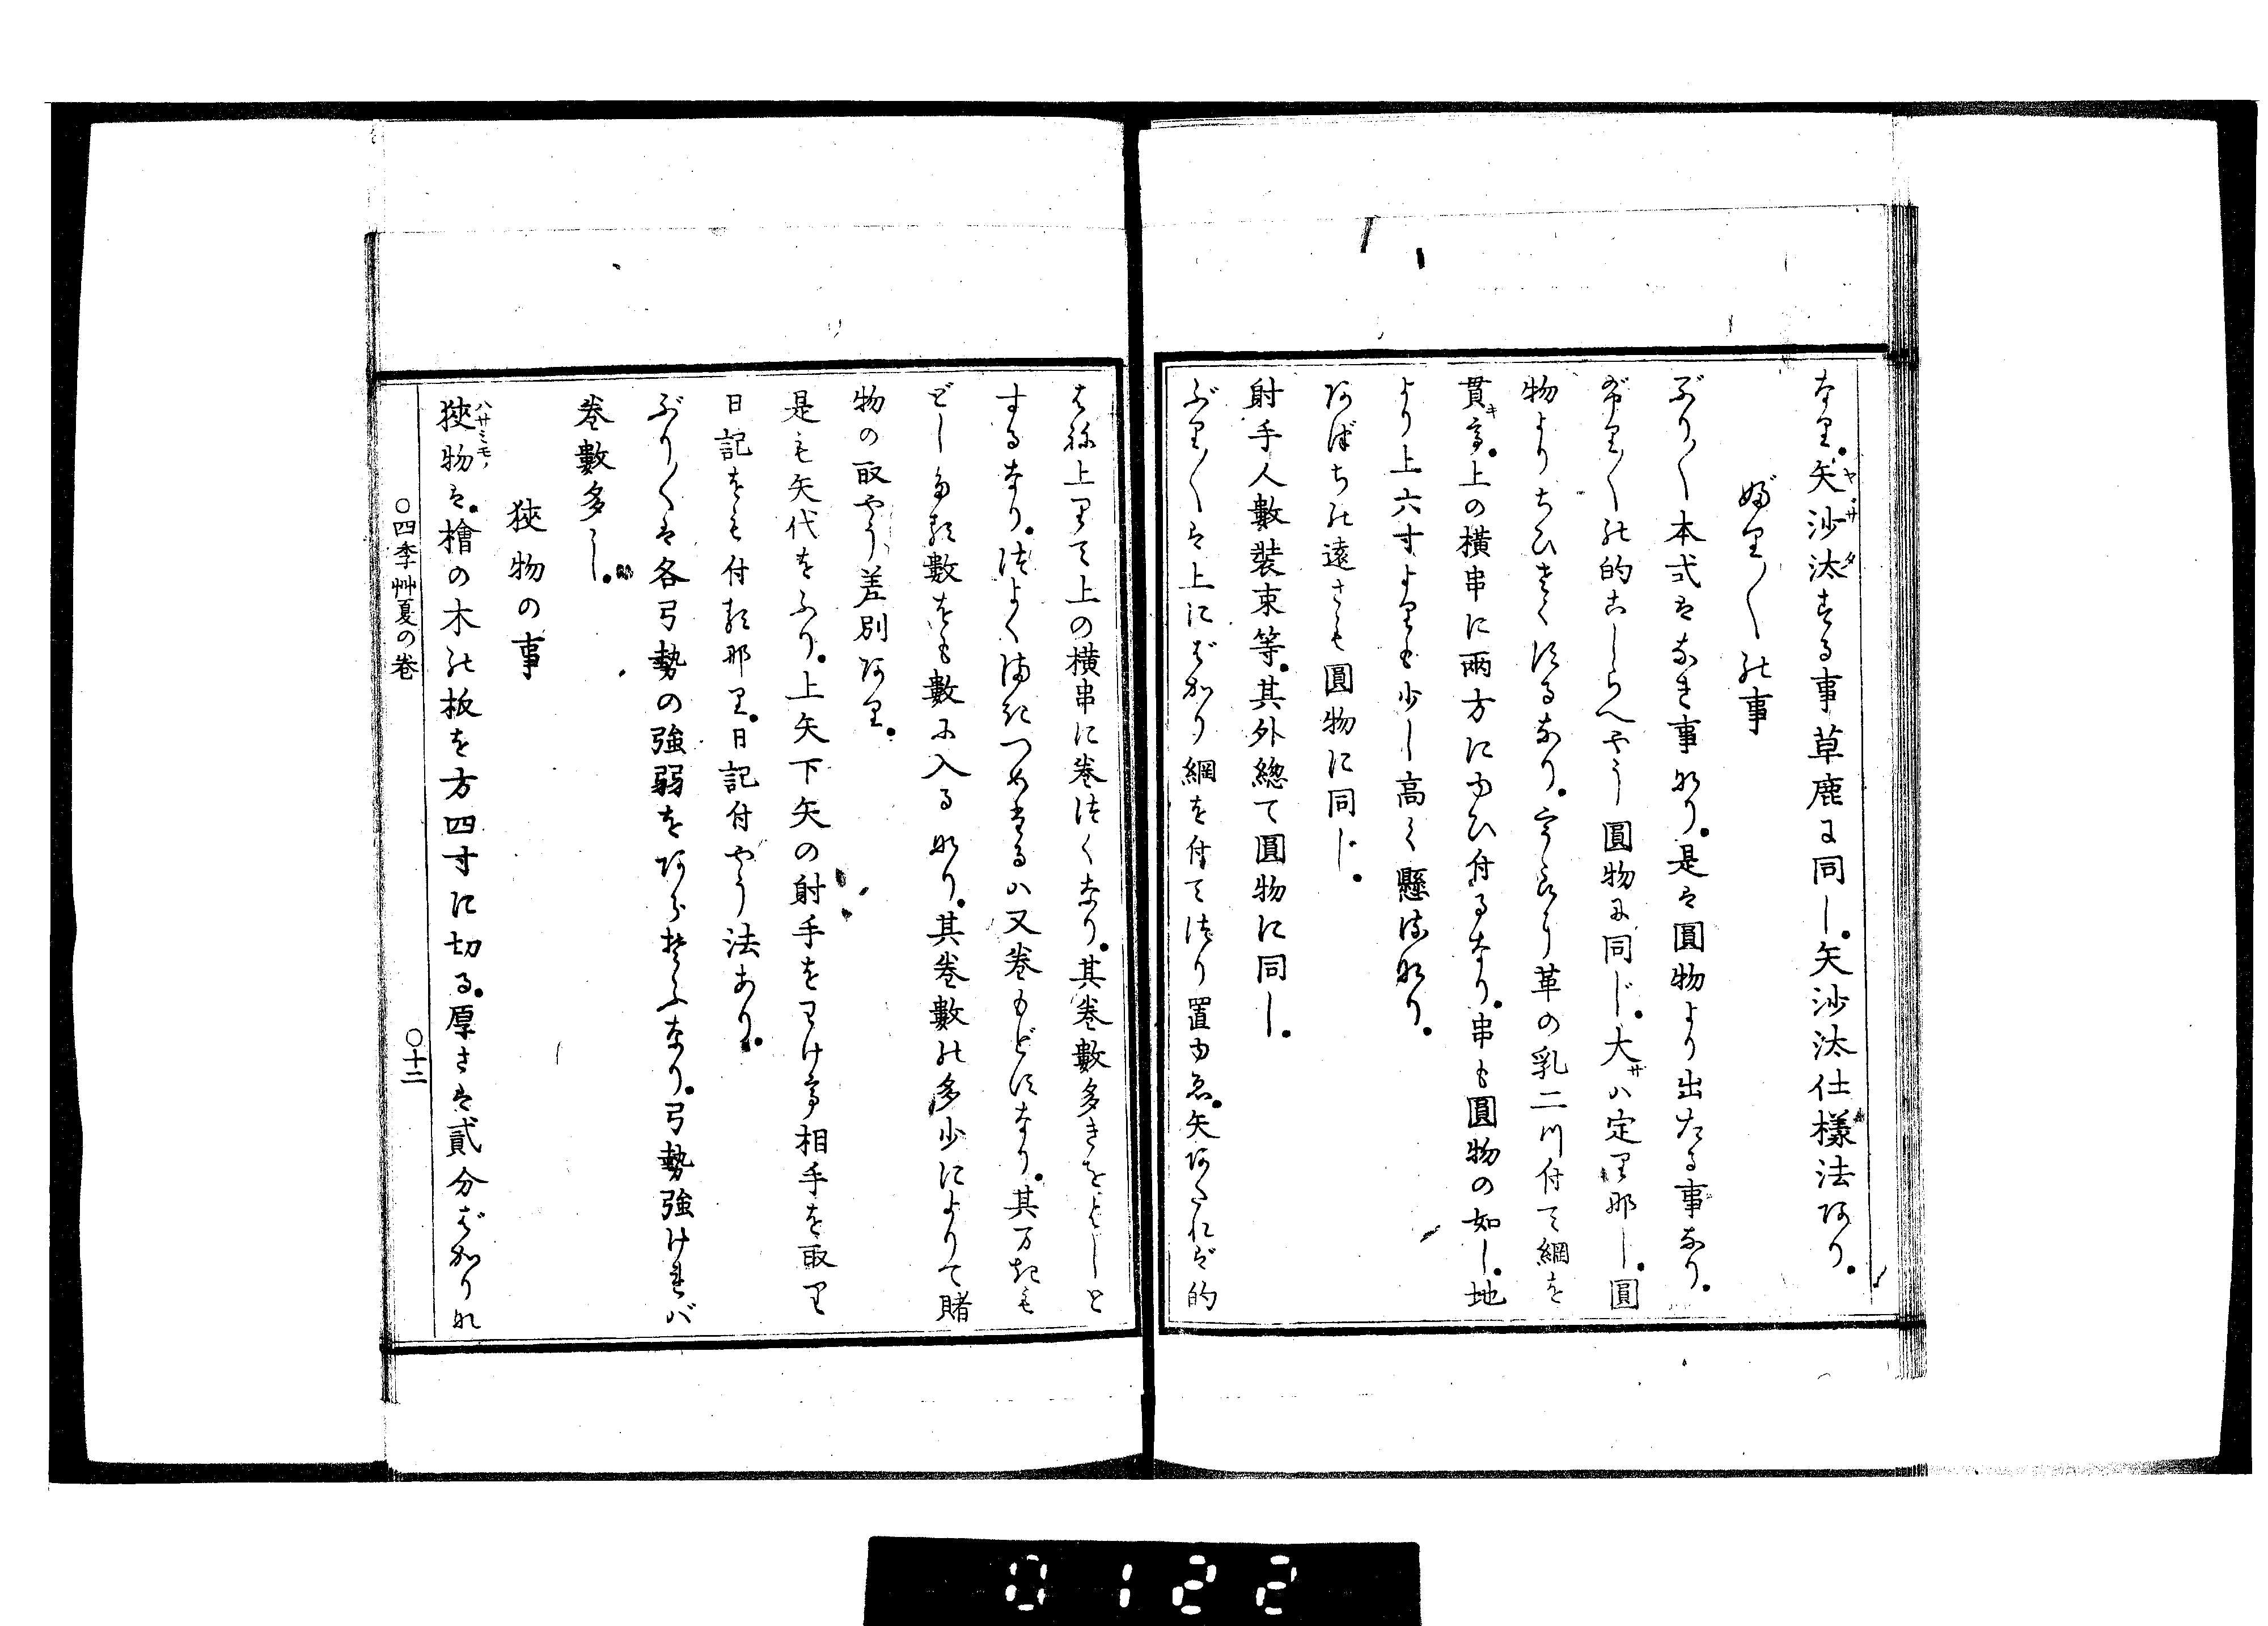 なり。矢沙汰する事草鹿に同し。矢沙汰仕様法あり。
ヤサタ
ぶり〳〵の事
ぶり〳〵本式はなき事なり。是は圓物より出たる事なり。
ぶり〳〵の的こしらへやう圓物に同じ。大サハ定りなし。圓
物よりちひさくするなり。うしろより革の乳二ツ付て綱を
貫キて。上の横串に兩方にゆひ付るなり。串も圓物の如し。地
より上六寸よりも少し高く懸るなり。
あばちの遠さも圓物に同じ。
射手人數裝束等。其外總て圓物に同し。
ぶり〳〵は上にばかり綱を付てつり置ゆゑ。矢あたれば的
はね上りて上の横串に巻つくなり。其巻數多きをよしと
するなり。つよくまきつめたるハ又巻もどすなり。其まきも
どしたる數をも數に入るなり。其巻數の多少によりて賭
物の取やう差別あり。
是も矢代をふり。上矢下矢の射手をわけて相手を取り
日記をも付るなり。日記付やう法あり。
ぶり〳〵は各弓勢の強弱をあらそふなり。弓勢強ければ
巻數多し。
狹物の事
ハサミモノ
狹物は。檜の木の板を方四寸に切る。厚さは貳分ばかりな
○四季艸夏の巻
○十二
0122